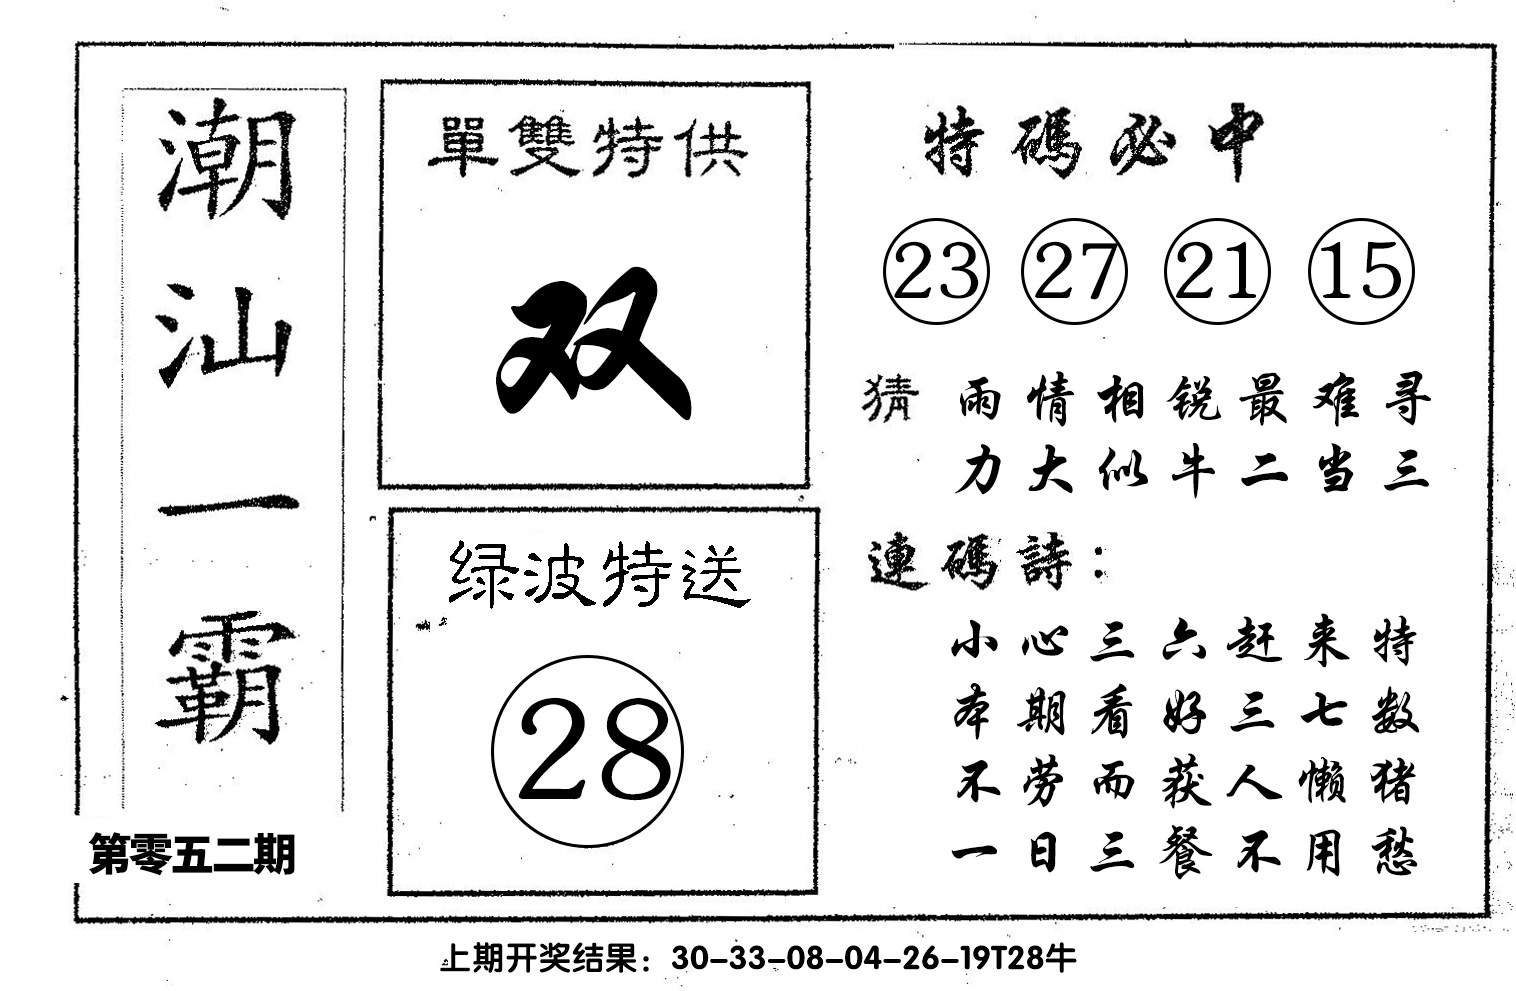 潮汕一霸
第零五二期
單雙特供
双
绿波特送
28
特碼必中
23 27 21 15
猜 雨情相锐最难寻
力大似牛二当三
連碼詩：
小心三六赶来特
本期看好三七数
不劳而获人懒猪
一日三餐不用愁
上期开奖结果：30-33-08-04-26-19T28牛